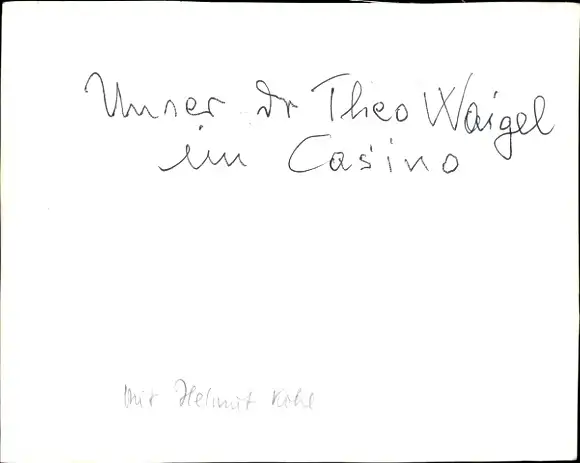 Unser dr Theo Waigel
im Casino
mit Helmut Kohl